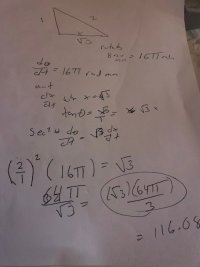 1 2
x
√3
rotate
8 rev/min = 16π r/min
dθ/dt = 16π rad min
wnt
dx/dt wn x = √3
tanθ =
√3 x
sec² θ dθ/dt = √3 dx/dt
(2/1)² (16π) = √3
64π/√3 = (√3)(64π)/3
= 116.08